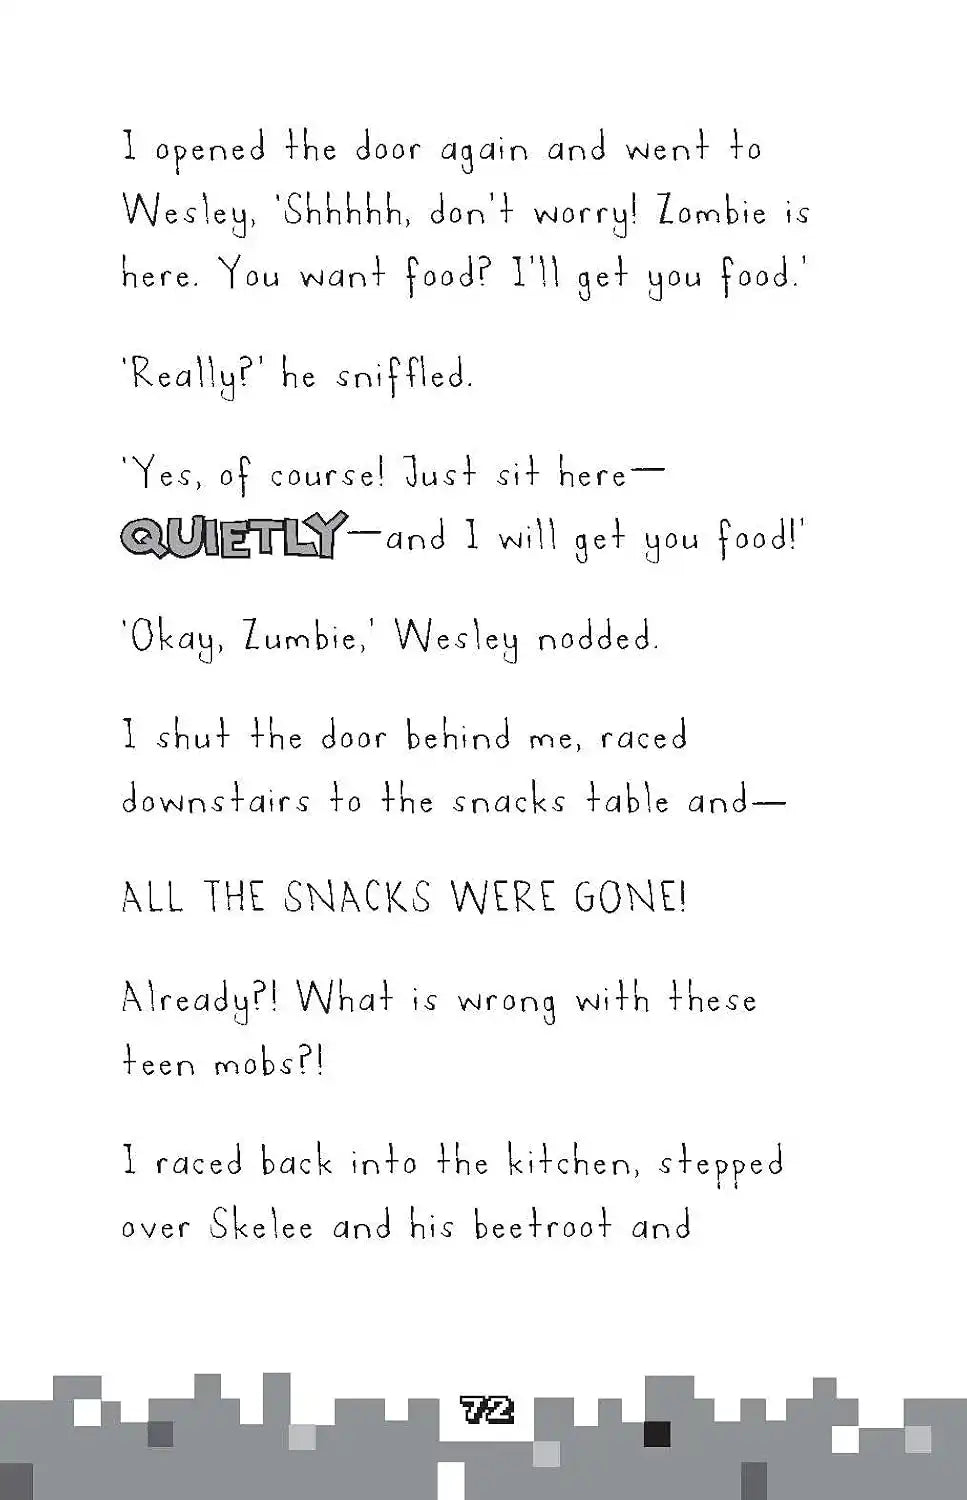 I opened the door again and went to
Wesley, 'Shhhhh, don't worry! Zombie is
here. You want food? I'll get you food.'
'Really?' he sniffled.
'Yes, of course! Just sit here—
QUIETLY—and I will get you food!'
'Okay, Zumbie,' Wesley nodded.
I shut the door behind me, raced
downstairs to the snacks table and—
ALL THE SNACKS WERE GONE!
Already?! What is wrong with these
teen mobs?!
I raced back into the kitchen, stepped
over Skelee and his beetroot and
72